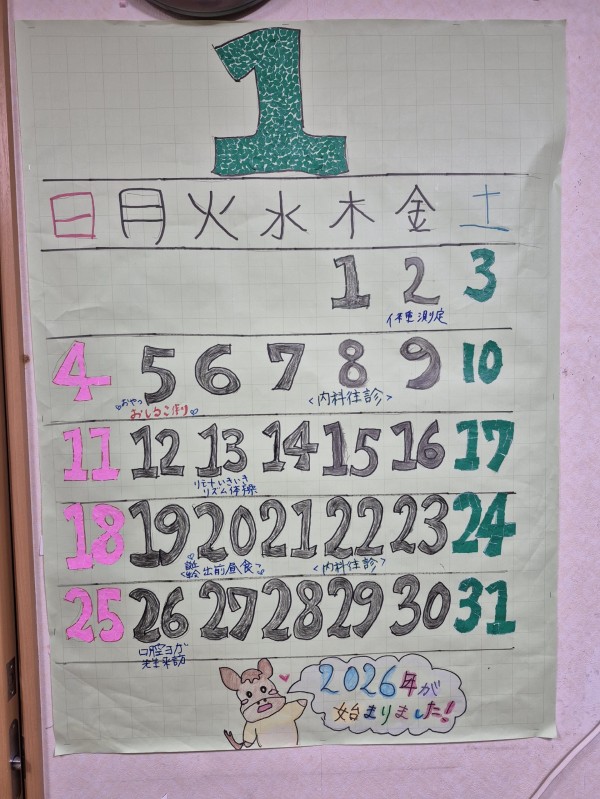 1
日 月 火 水 木 金 土
1 2 3
体重測定
4 5 6 7 8 9 10
おやつ
おしるこ作り
<内科往診>
11 12 13 14 15 16 17
リモートいきいき
リズム体操
18 19 20 21 22 23 24
出前昼食
<内科往診>
25 26 27 28 29 30 31
口腔ヨガ
先生来訪
2026年が
始まりました!